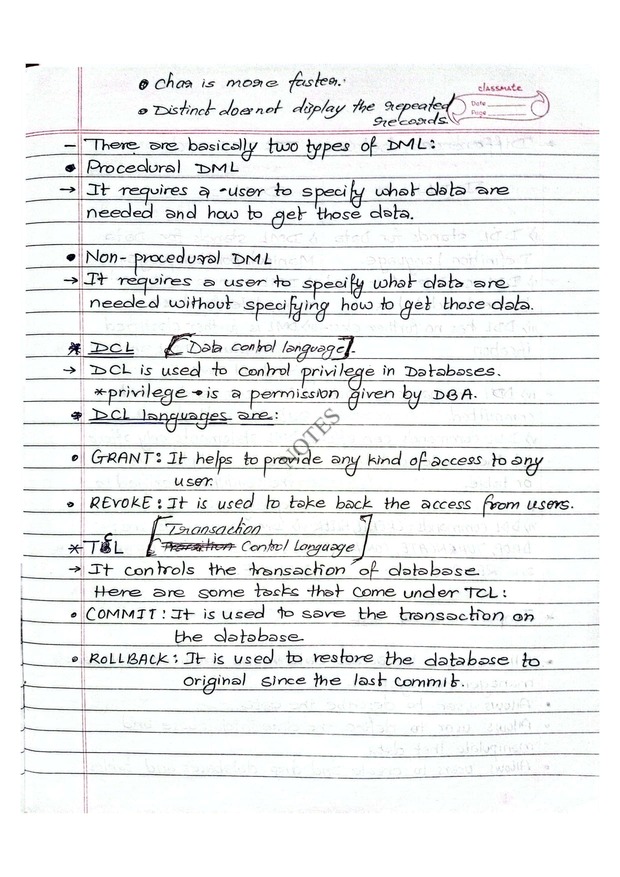 • Char is more faster.
classmate
Date
Page
• Distinct does not display the repeated
records
- There are basically two types of DML:
• Procedural DML
→ It requires a user to specify what data are
needed and how to get those data.
• Non-procedural DML
→ It requires a user to specify what data are
needed without specifying how to get those data.
* DCL [Data control language].
→ DCL is used to control privilege in Databases.
*privilege → is a permission given by DBA.
* DCL languages are:
NOTES
• GRANT: It helps to provide any kind of access to any
user.
• REVOKE: It is used to take back the access from users.
[Transaction
* TCL Control Language]
→ It controls the transaction of database.
Here are some tasks that come under TCL:
• COMMIT: It is used to save the transaction on
the database
• ROLLBACK: It is used to restore the database to
original since the last commit.